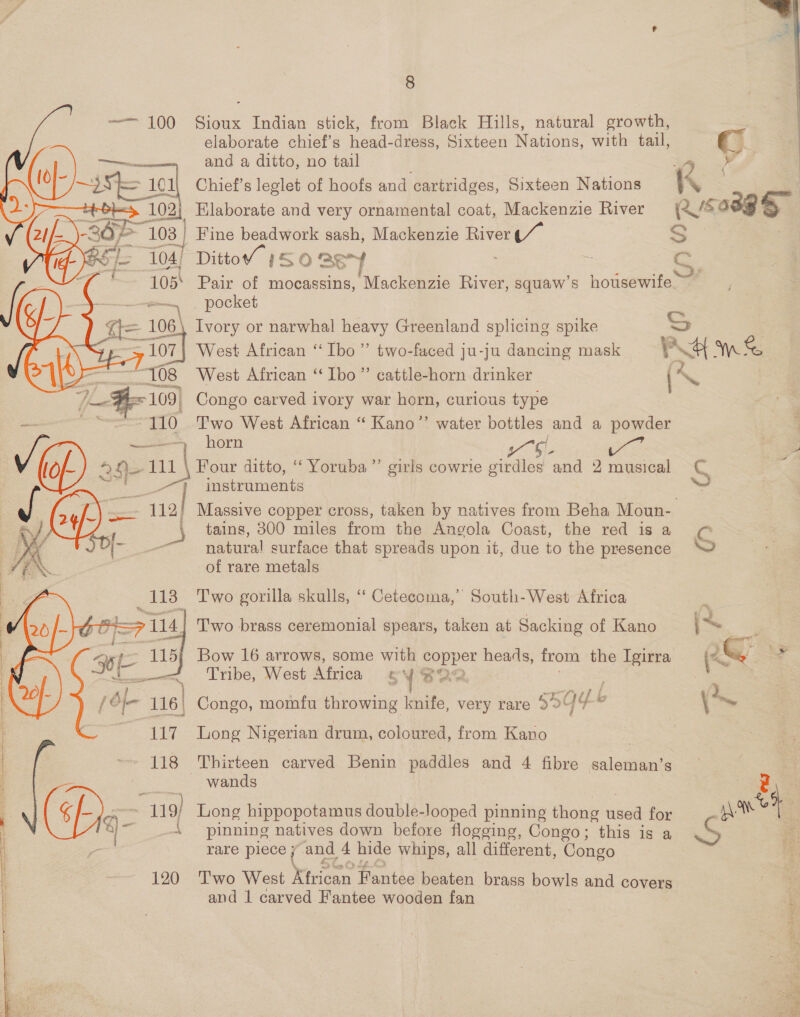 8
100 Sioux Indian stick, from Black Hills, natural growth,
elaborate chief's head-dress, Sixteen Nations, with tail,
and a ditto, no tail
101 Chief's leglet of hoofs and cartridges, Sixteen Nations
102 Elaborate and very ornamental coat, Mackenzie River
103 Fine beadwork sash, Mackenzie River
104 Ditto
105 Pair of mocassins, Mackenzie River, squaw's housewife
pocket
106 Ivory or narwhal heavy Greenland splicing spike
107 West African “Ibo” two-faced ju-ju dancing mask
108 West African “Ibo” cattle-horn drinker
109 Congo carved ivory war horn, curious type
110 Two West African “Kano” water bottles and a powder
horn
111 Four ditto, “Yoruba” girls cowrie girdles and 2 musical
instruments
112 Massive copper cross, taken by natives from Beha Moun-
tains, 300 miles from the Angola Coast, the red is a
natural surface that spreads upon it, due to the presence
of rare metals
113 Two gorilla skulls, “Cetecoma,” South-West Africa
114 Two brass ceremonial spears, taken at Sacking of Kano
115 Bow 16 arrows, some with copper heads, from the Igirra
Tribe, West Africa
116 Congo, momfu throwing knife, very rare
117 Long Nigerian drum, coloured, from Kano
118 Thirteen carved Benin paddles and 4 fibre saleman's
wands
119 Long hippopotamus double-looped pinning thong used for
pinning natives down before flogging, Congo; this is a
rare piece; and 4 hide whips, all different, Congo
120 Two West African Fantee beaten brass bowls and covers
and 1 carved Fantee wooden fan